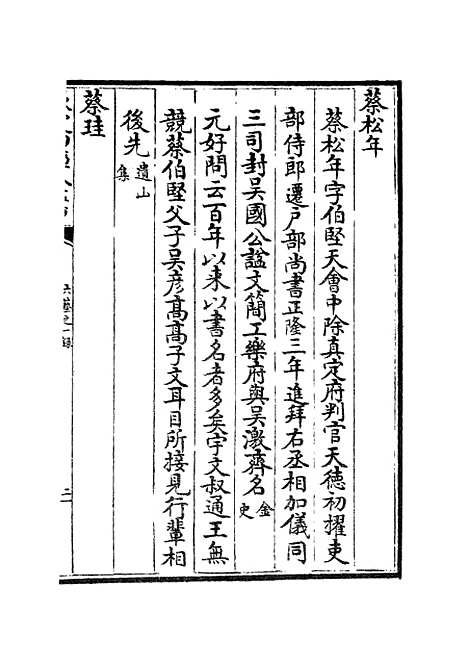 蔡松年
蔡松年字伯堅天會中除真定府判官天德初擢吏
部侍郎遷戶部尚書正隆三年進拜右丞相加儀同
三司封吳國公諡文簡工樂府與吳激齊名金史
元好問云百年以來以書名者多矣宇文叔通王無
競蔡伯堅父子吳彥高高子文耳目所接見行輩相
後先遺山集
蔡珪